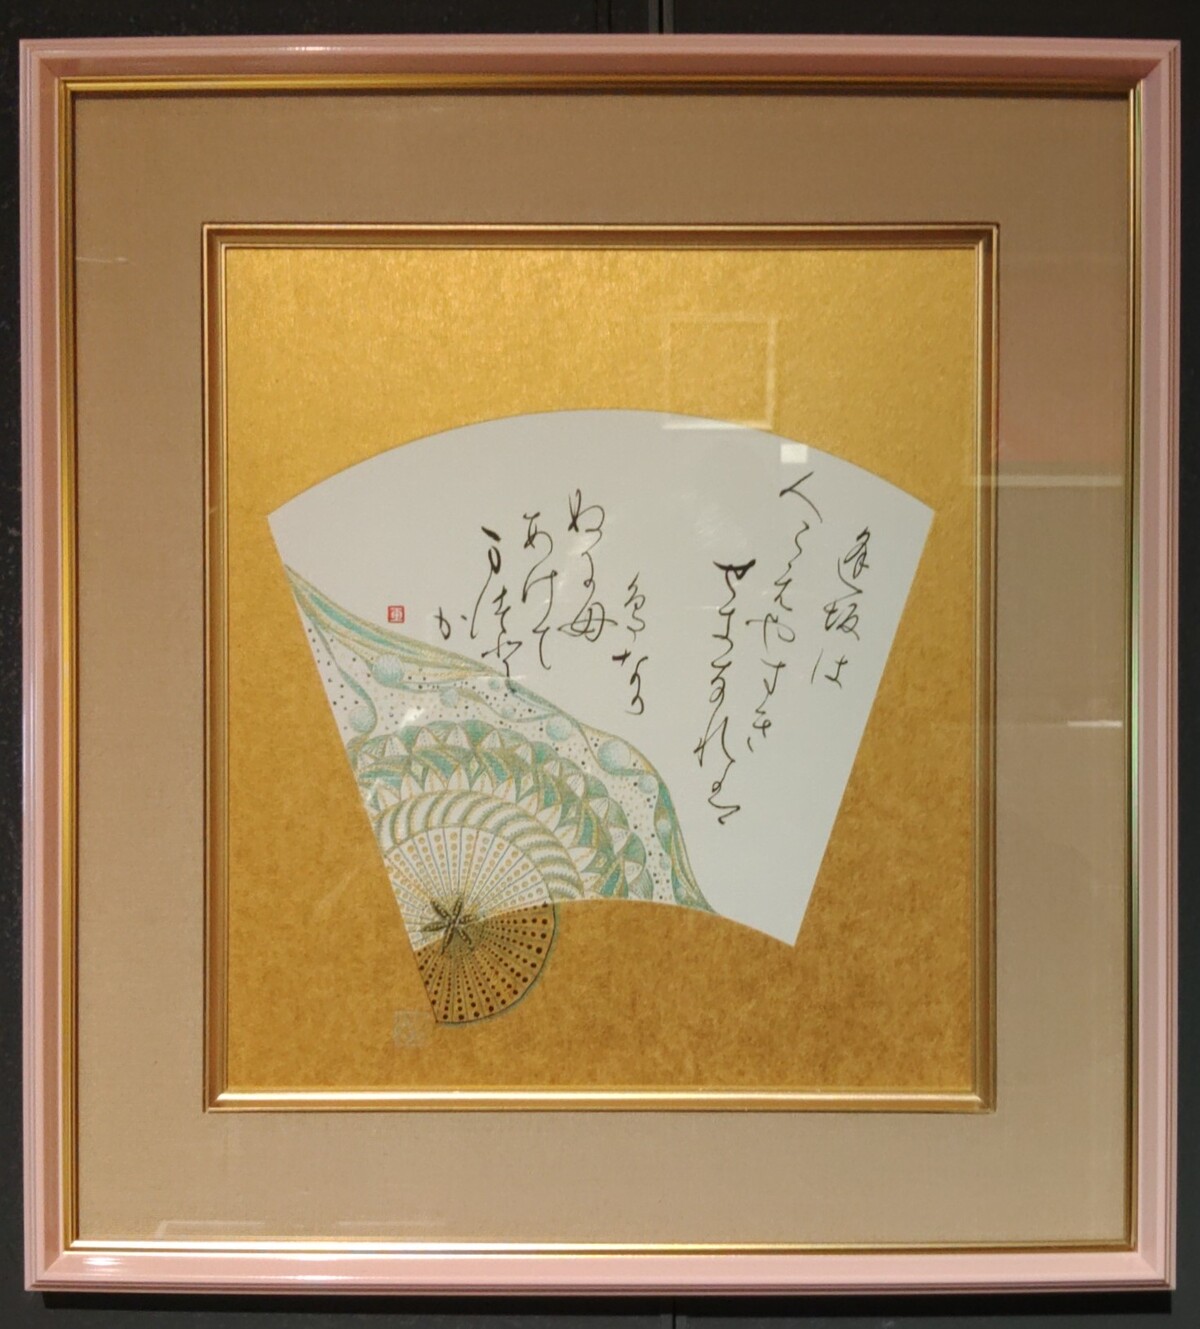 逢坂は
人こえやすき
せきなれば
鳥なか
ぬに母
あけて
まつと
か